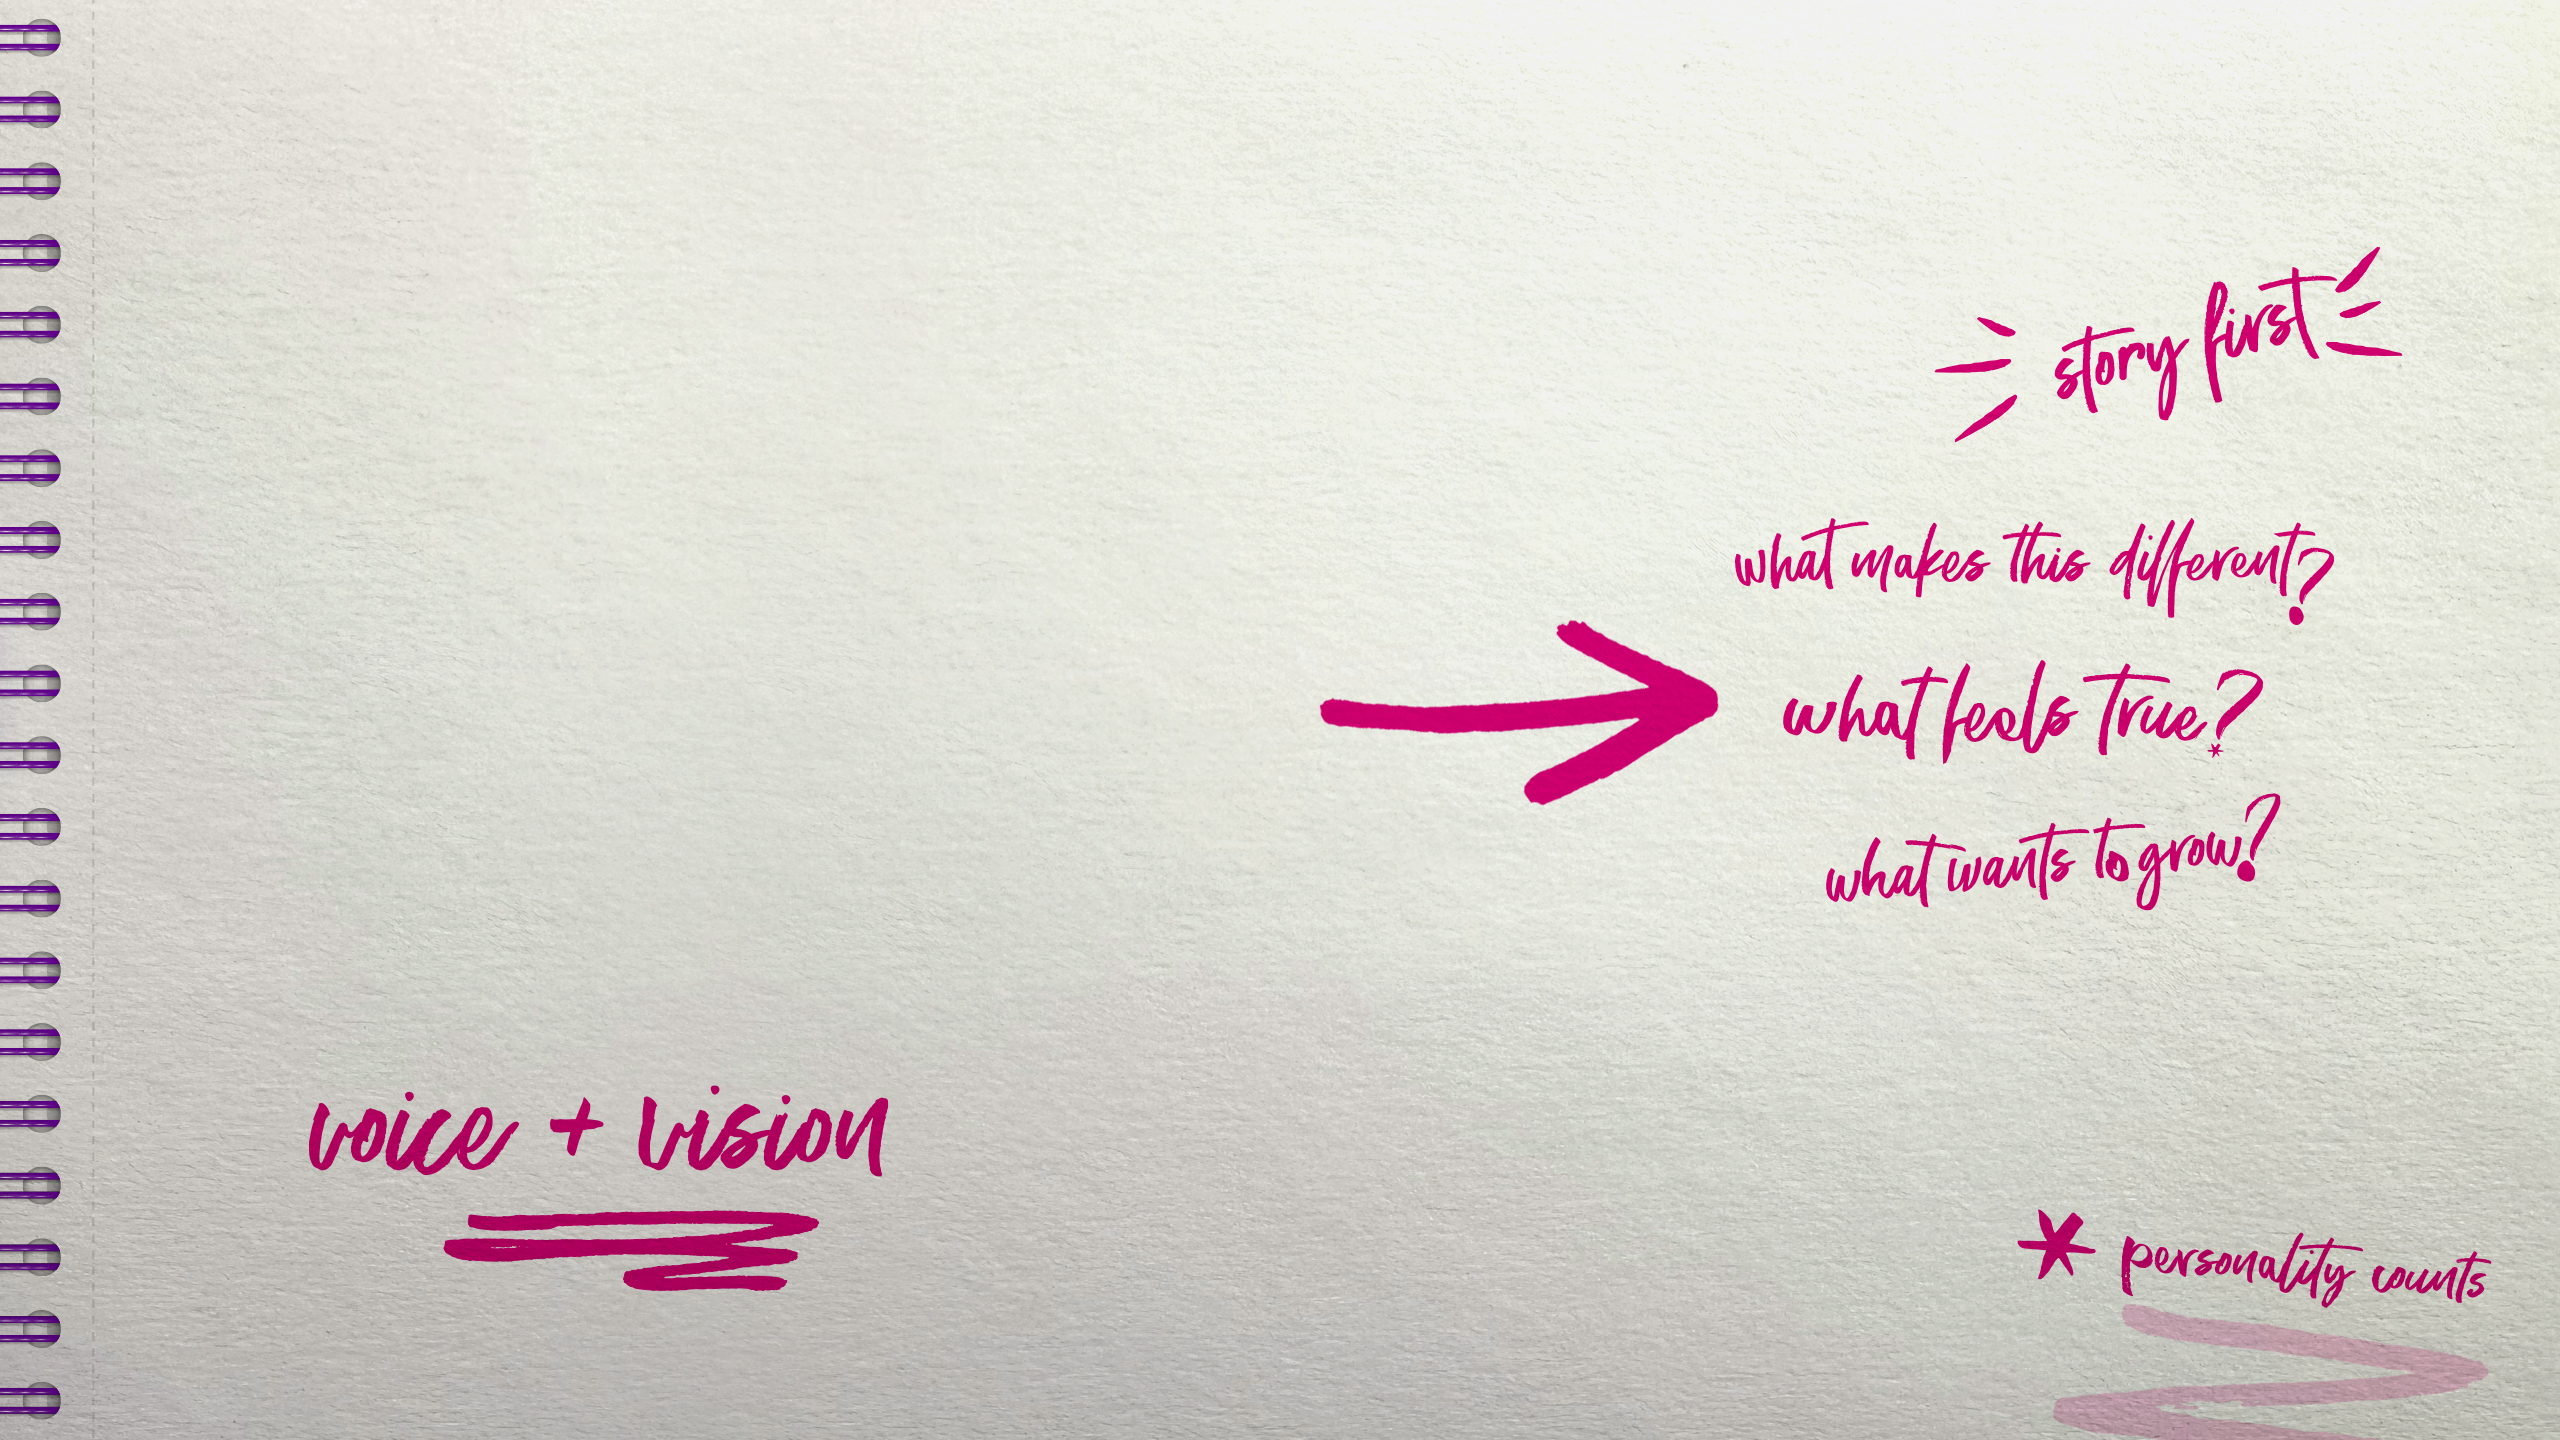 story first
what makes this different?
what feels true?*
what wants to grow?
voice + vision
* personality counts